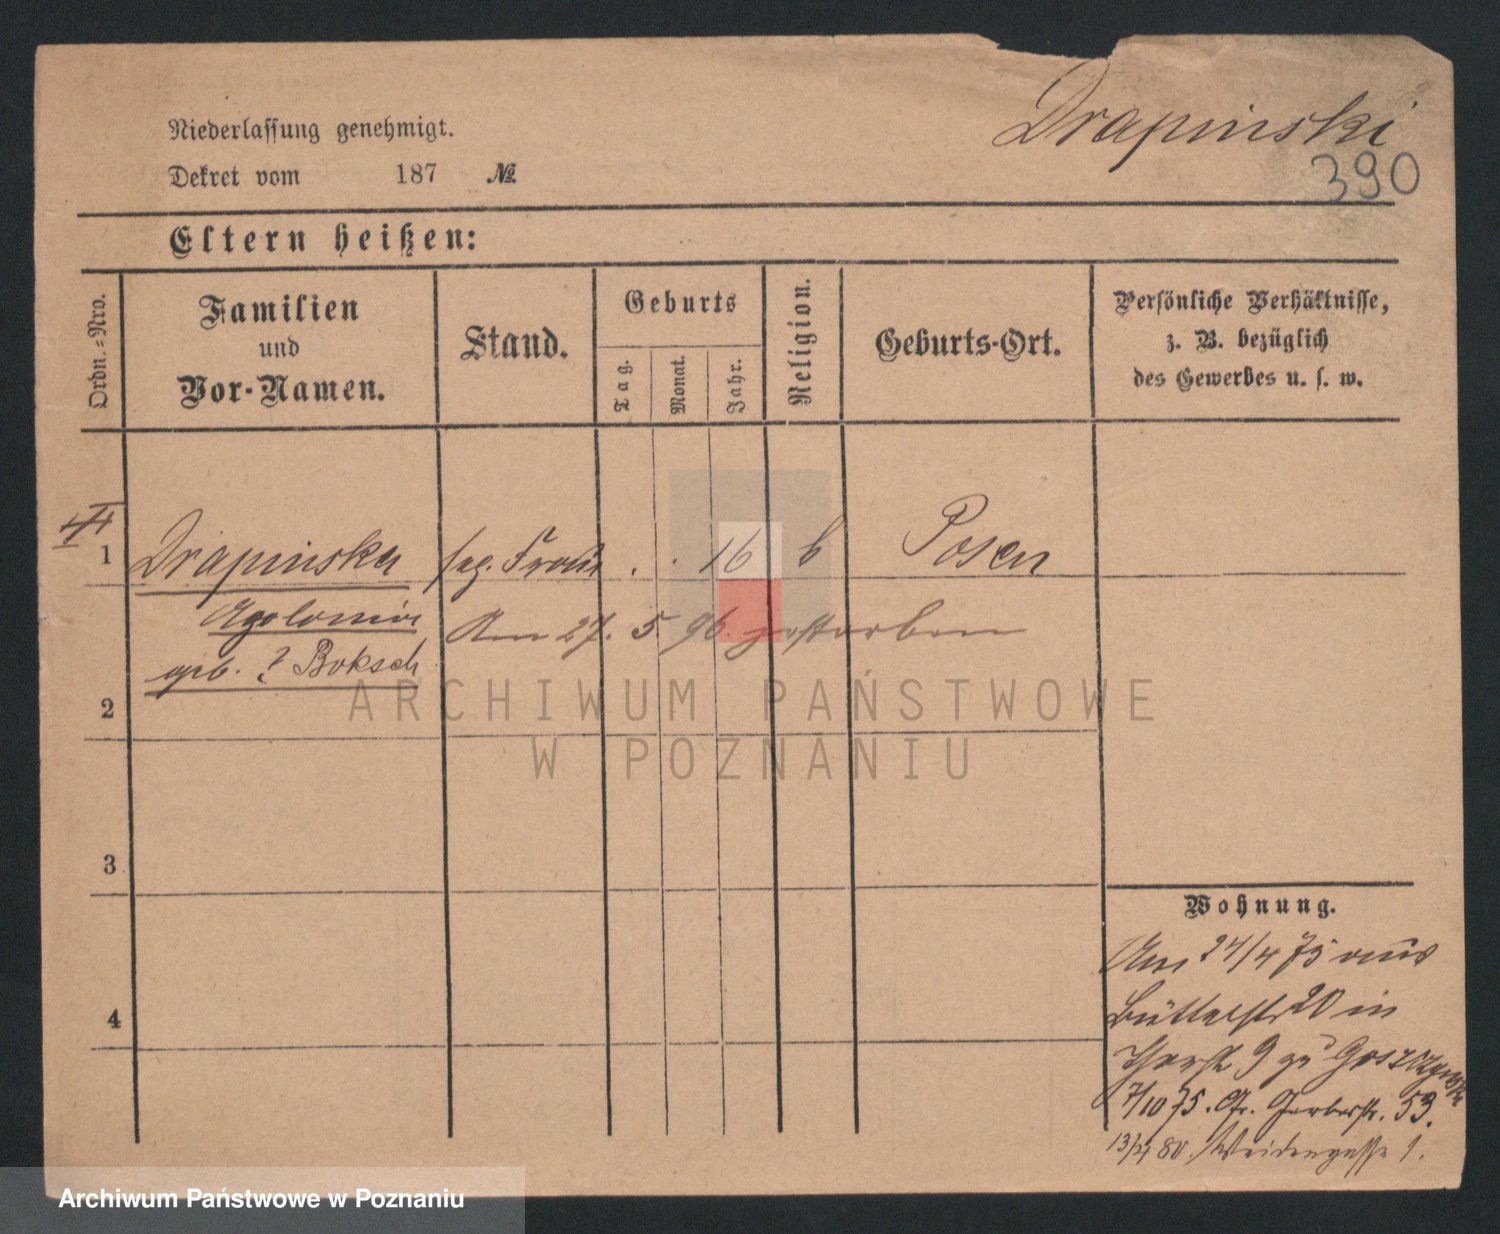 Drapinski
390
Niederlassung genehmigt.
Dekret vom 187 №
Eltern heißen:
Ordn.=Nro.
Familien
und
Vor-Namen.
Stand.
Geburts
Tag.
Monat.
Jahr.
Religion.
Geburts-Ort.
Persönliche Verhältnisse,
z. B. bezüglich
des Gewerbes u. s. w.
1 Drapinska sep. Frau . . 16 k Posen
Apolonia Am 27. 5. 96. gestorben
geb. ? Boksch
2
3
4
Wohnung.
Am 24/4 75 aus
Büttelstr 20 in
9 zu
7/10 75. Gr. Gerberstr. 53.
80. Weidengasse 1.
ARCHIWUM PAŃSTWOWE
W POZNANIU
Archiwum Państwowe w Poznaniu